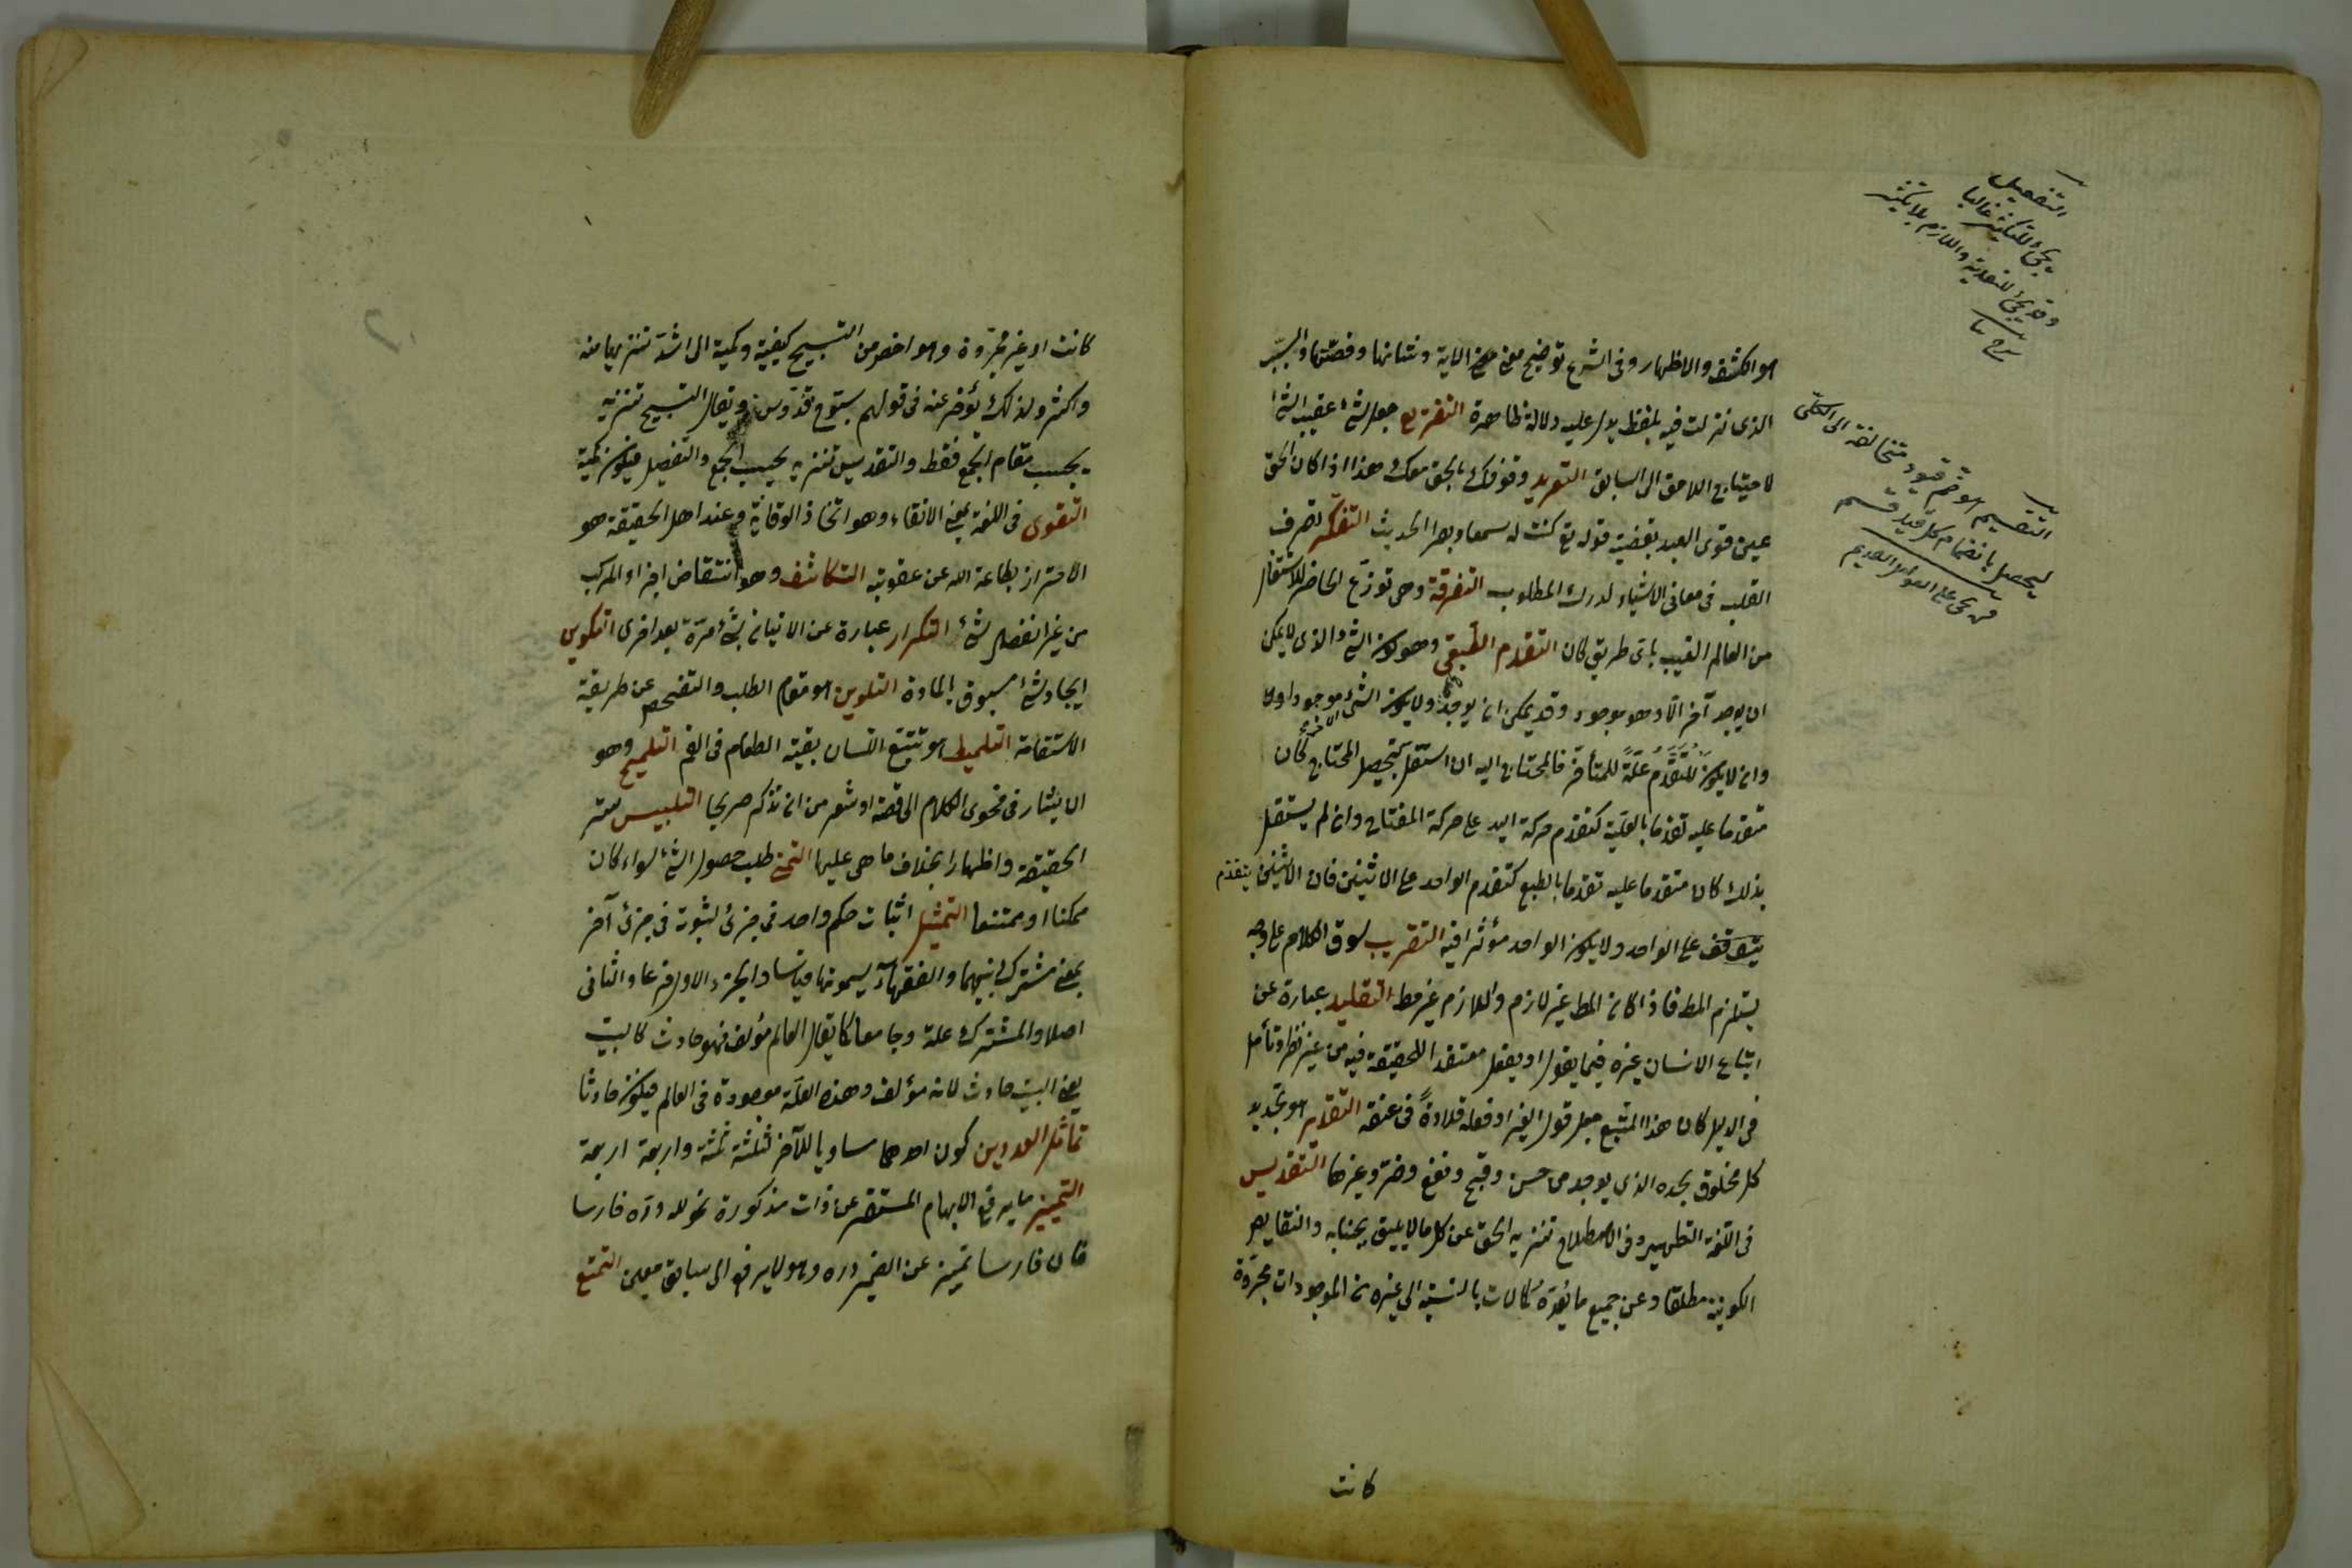 هو الكشف والاظهار وفى الشرع توضيح معنى الاية وشانها وقصتها والسبب
الذى نزلت فيه بلفظ يدل عليه دلالة ظاهرة التفريع جعل شئ عقيب شئ
لاحتياج اللاحق الى السابق التفريد وقوفك بالحق معك هذا اذا كان الحق
عين قوى العبد بقضية قوله تع كنت له سمعا وبصرا الحديث التفكر تصرف
القلب فى معانى الاشياء لدرك المطلوب التفرقة وهى توزع الخاطر للاشتغال
من العالم الغيب باى طريق كان التقدم الطبيعى وهو كون الشئ الذى لا يمكن
ان يوجد آخر الا وهو موجود وقد يمكن ان يوجد ولا يكون الشئ الاخر موجودا
وان لا يكون المتقدم علة للمتأخر فالمحتاج اليه ان استقل بتحصيل المحتاج كان
متقدما عليه تقدما بالعلية كتقدم حركة اليد على حركة المفتاح وان لم يستقل
بذلك كان متقدما عليه تقدما بالطبع كتقدم الواحد على الاثنين فان الاثنين
يتوقف على الواحد ولا يكون الواحد مؤثرا فيه التقريب سوق الكلام على وجه
يستلزم المط فاذا كان المط غير لازم واللازم غير مط التقليد عبارة عن
اتباع الانسان غيره فيما يقول او يفعل معتقدا للحقيقة فيه من غير نظر وتأمل
فى الدليل كان هذا المتبع جعل قول الغير او فعله قلادةً فى عنقه التقدير هو تحديد
كل مخلوق بحده الذى يوجد من حسن وقبح ونفع وضر وغيرها التقديس
فى اللغة التطهير وفى الاصطلاح تنزيه الحق عن كل ما لا يليق بجنابه والنقايص
الكونية مطلقا وعن جميع ما يُعدّ كمالات بالنسبة الى غيره من الموجودات مجرّدة
كانت
التفعيل
يجئ للتكثير غالبا
وقد يجئ للتعدية
التقسيم هو ضم قيود متخالفة الى الكلى
ليحصل بانضمام كل قيد قسم
كانت او غير مجردة وهو اخص من التسبيح كيفية وكمية الى اشد تنزيها منه
واكثر ولذلك يؤخر عنه فى قولهم سبّوح قدّوس ويقال التسبيح تنزيه
بحسب مقام الجمع فقط والتقديس تنزيه بحسب الجمع والتفصيل فيكون كمية
التقوى فى اللغة بمعنى الاتقاء وهو اتخاذ الوقاية وعند اهل الحقيقة هو
الاحتراز بطاعة الله عن عقوبته التكاثف وهو انتقاض اجزاء المركب
من غير انفصال شئ التكرار عبارة عن الاتيان بشئ مرّة بعد اخرى التكوين
ايجاد شئ مسبوق بالمادة التلوين هو مقام الطلب والتفحص عن طريقة
الاستقامة التلميظ هو تتبع اللسان بقية الطعام فى الفم التلميح وهو
ان يشار فى فحوى الكلام الى قصة او شعر من ان تذكر صريحا التلبيس ستر
الحقيقة واظهارا بخلاف ما هى عليها التمنى طلب حصول الشئ سواء كان
ممكنا او ممتنعا التمثيل اثبات حكم واحد فى جزئ لثبوته فى جزئ آخر
بمعنى مشترك بينهما والفقهاء يسمونها قياسا والجزء الاول فرعا والثانى
اصلا والمشترك علة وجامعا كما يقال العالم مؤلف فهو حادث كالبيت
يعنى البيت حادث لانه مؤلف وهذه العلّة موجودة فى العالم فيكون حادثا
تماثل العددين كون احدهما مساويا للآخر كثلثة ثلثة واربعة اربعة
التمييز ما يرفع الابهام المستقر عن ذات مذكورة نحو لله درّه فارسا
فان فارسا تمييز عن الضمير دره وهو لا يرفع الى سابق معين التمتع